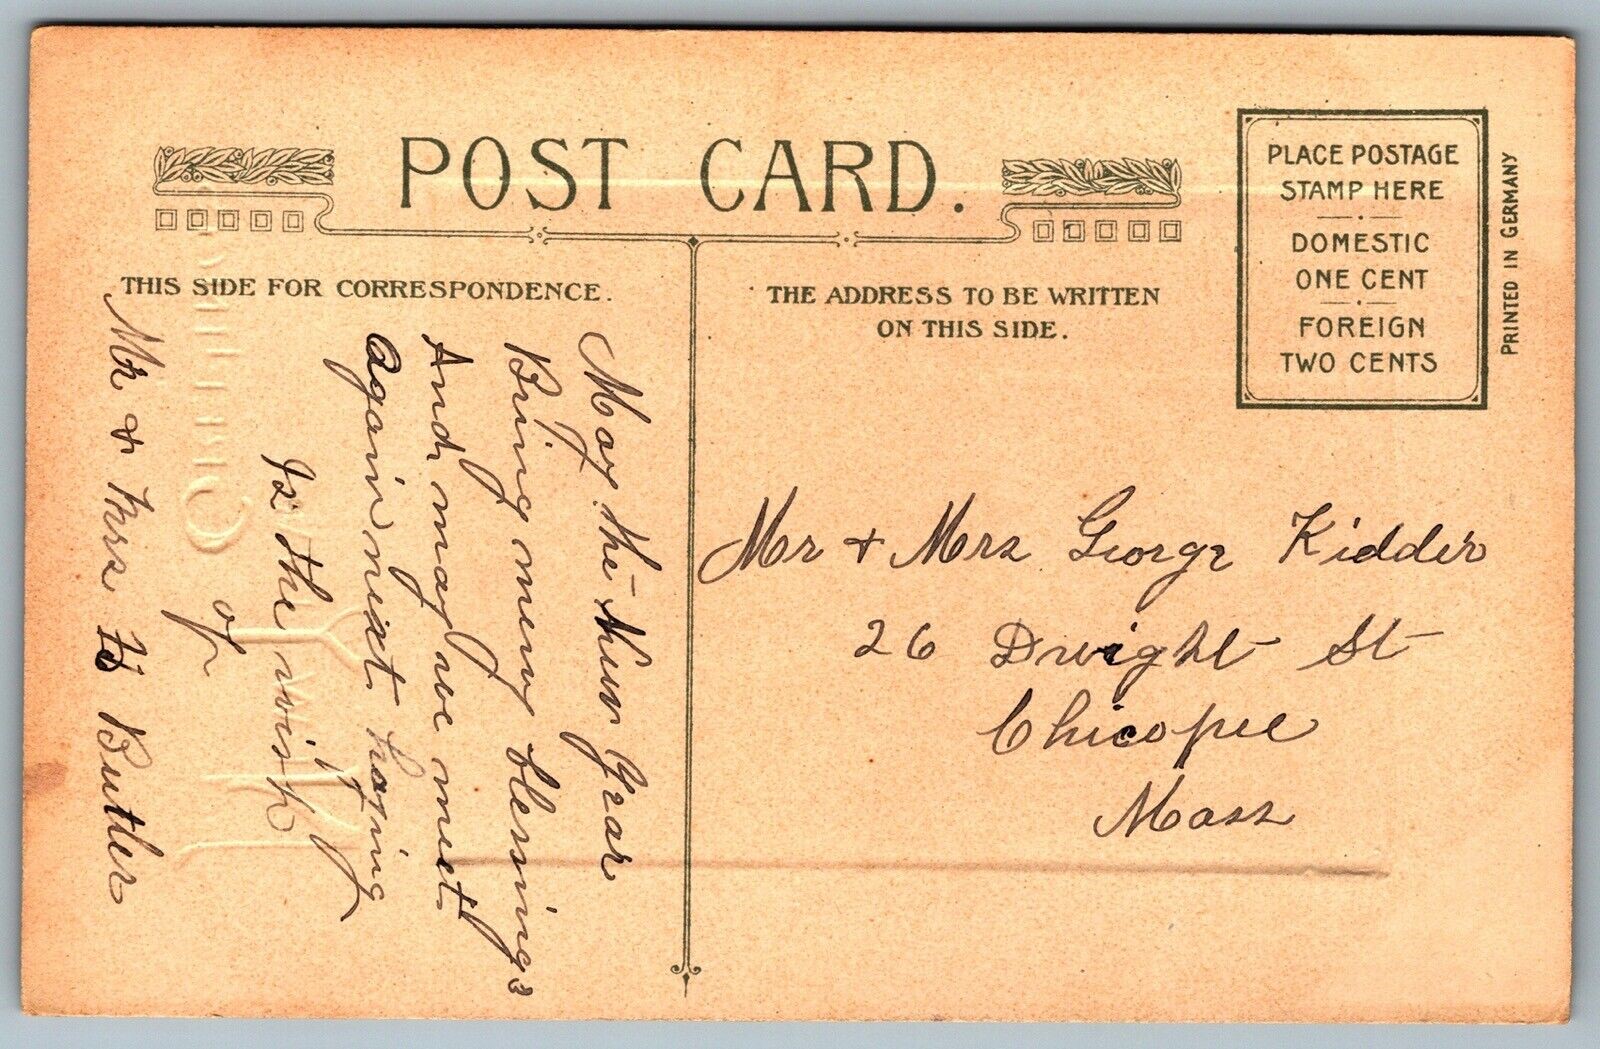 POST CARD.
THIS SIDE FOR CORRESPONDENCE.
May the New Year
Bring many blessings
And may we meet
Again next
Is the wish
of
Mr & Mrs H Butler
THE ADDRESS TO BE WRITTEN
ON THIS SIDE.
PLACE POSTAGE
STAMP HERE
DOMESTIC
ONE CENT
FOREIGN
TWO CENTS
PRINTED IN GERMANY
Mr + Mrs George Kidder
26 Dwight St
Chicopee
Mass